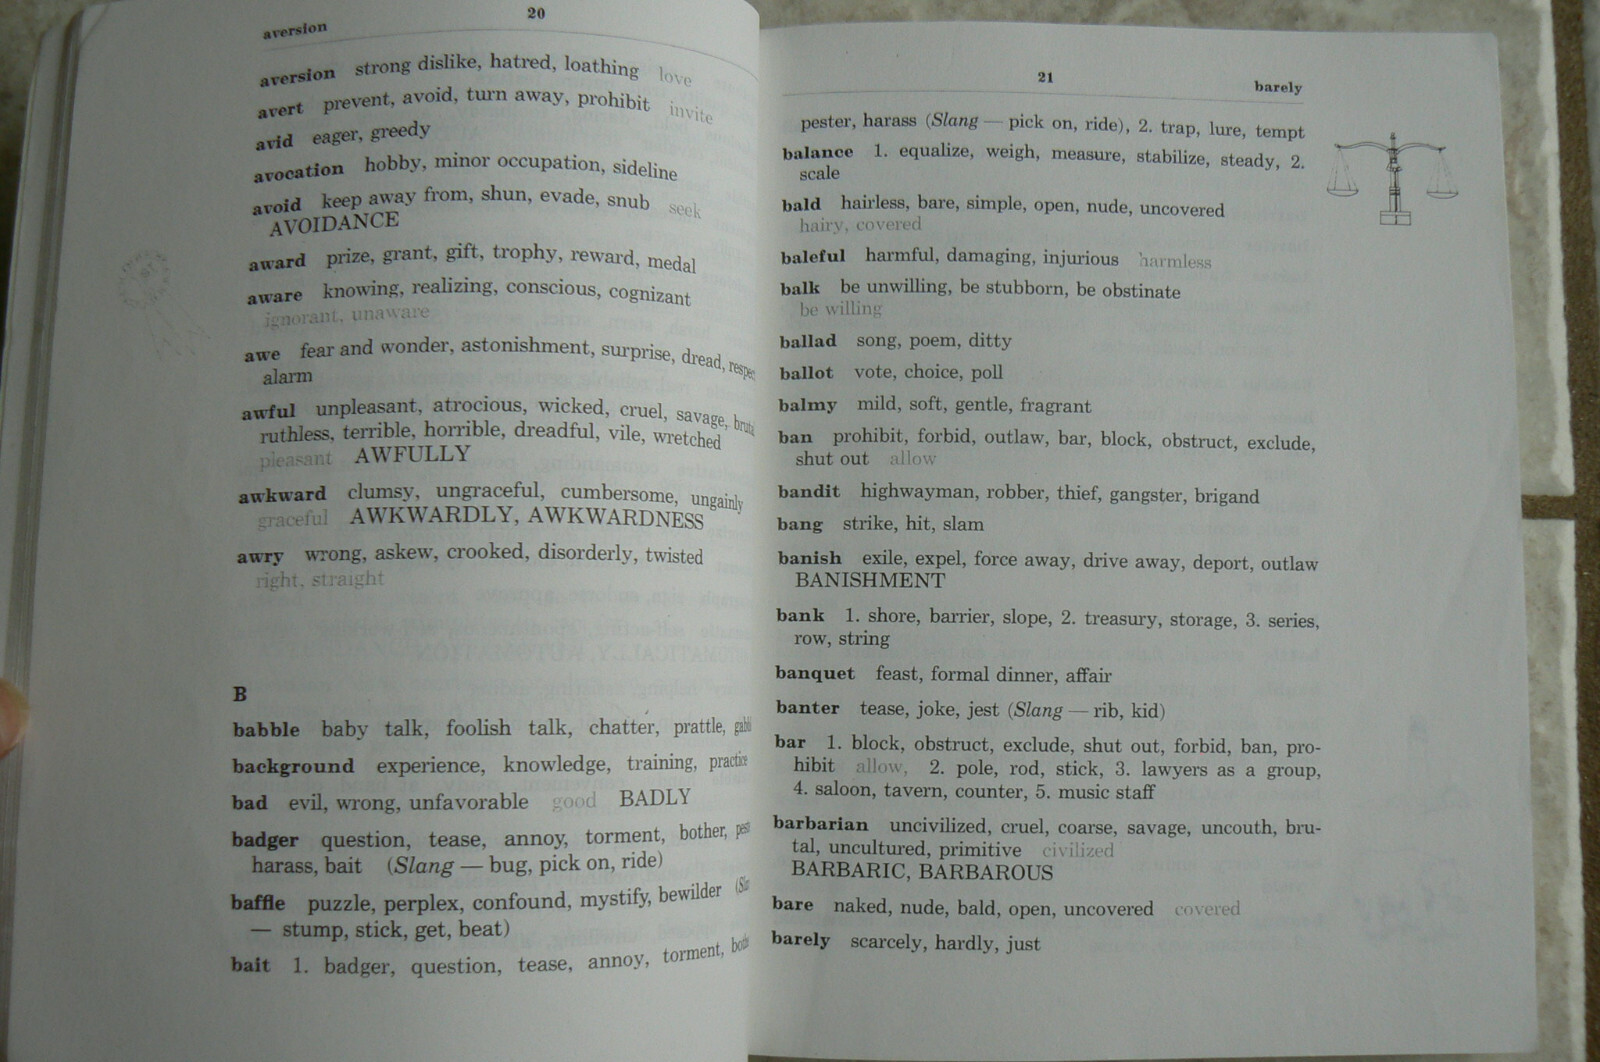 aversion 20
aversion strong dislike, hatred, loathing love
avert prevent, avoid, turn away, prohibit invite
avid eager, greedy
avocation hobby, minor occupation, sideline
avoid keep away from, shun, evade, snub seek
AVOIDANCE
award prize, grant, gift, trophy, reward, medal
aware knowing, realizing, conscious, cognizant
ignorant, unaware
awe fear and wonder, astonishment, surprise, dread,
alarm
awful unpleasant, atrocious, wicked, cruel, savage,
ruthless, terrible, horrible, dreadful, vile, wretched
pleasant AWFULLY
awkward clumsy, ungraceful, cumbersome, ungainly
graceful AWKWARDLY, AWKWARDNESS
awry wrong, askew, crooked, disorderly, twisted
right, straight
B
babble baby talk, foolish talk, chatter, prattle,
background experience, knowledge, training, practice
bad evil, wrong, unfavorable good BADLY
badger question, tease, annoy, torment, bother,
harass, bait (Slang — bug, pick on, ride)
baffle puzzle, perplex, confound, mystify, bewilder
— stump, stick, get, beat)
bait 1. badger, question, tease, annoy, torment,
21 barely
pester, harass (Slang — pick on, ride), 2. trap, lure, tempt
balance 1. equalize, weigh, measure, stabilize, steady, 2.
scale
bald hairless, bare, simple, open, nude, uncovered
hairy, covered
baleful harmful, damaging, injurious harmless
balk be unwilling, be stubborn, be obstinate
be willing
ballad song, poem, ditty
ballot vote, choice, poll
balmy mild, soft, gentle, fragrant
ban prohibit, forbid, outlaw, bar, block, obstruct, exclude,
shut out allow
bandit highwayman, robber, thief, gangster, brigand
bang strike, hit, slam
banish exile, expel, force away, drive away, deport, outlaw
BANISHMENT
bank 1. shore, barrier, slope, 2. treasury, storage, 3. series,
row, string
banquet feast, formal dinner, affair
banter tease, joke, jest (Slang — rib, kid)
bar 1. block, obstruct, exclude, shut out, forbid, ban, pro-
hibit allow, 2. pole, rod, stick, 3. lawyers as a group,
4. saloon, tavern, counter, 5. music staff
barbarian uncivilized, cruel, coarse, savage, uncouth, bru-
tal, uncultured, primitive civilized
BARBARIC, BARBAROUS
bare naked, nude, bald, open, uncovered covered
barely scarcely, hardly, just